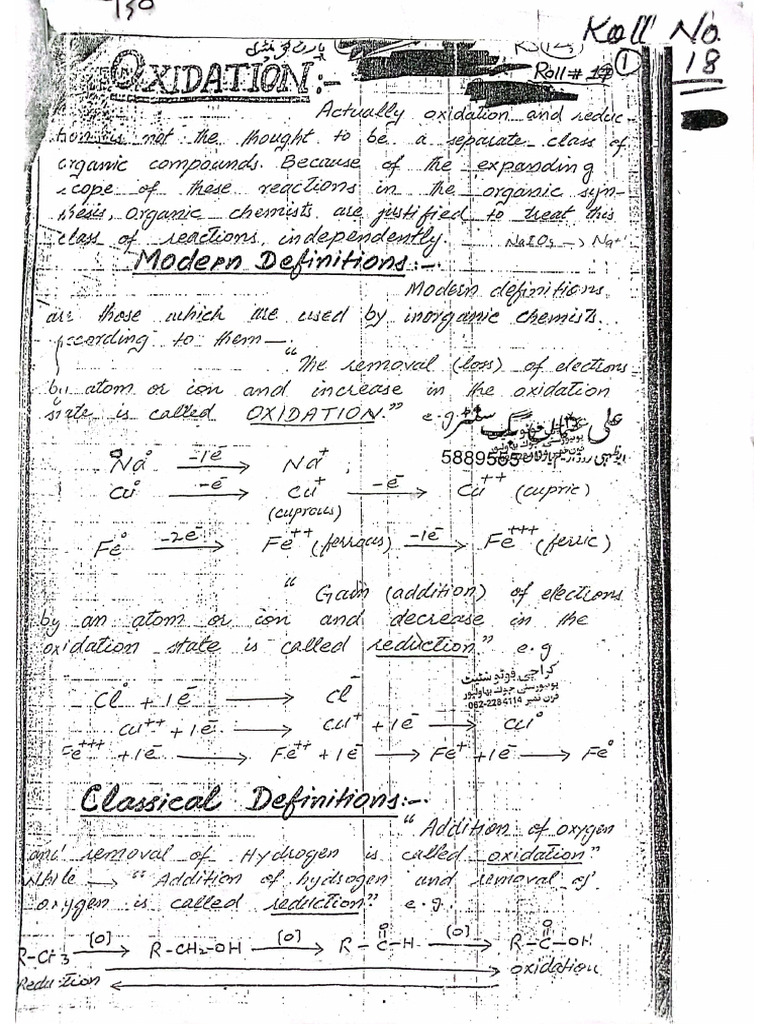 Roll No.
18
Roll # 18 1
OXIDATION:-
Actually oxidation and reduc-
tion is not the thought to be a separate class of
organic compounds. Because of the expanding
scope of these reactions in the organic syn-
thesis, organic chemists are justified to treat this
class of reactions independently.
Modern Definitions:-
Modern definitions
are those which are used by inorganic chemists.
According to them—
"The removal (loss) of electrons
by atom or ion and increase in the oxidation
state is called OXIDATION." e.g
5889565
Na° —-1e⁻→ Na⁺ ;
Cu° —-e⁻→ Cu⁺ —-e⁻→ Cu⁺⁺ (cupric)
(cuprous)
Fe° —-2e⁻→ Fe⁺⁺ (ferrous) —-1e⁻→ Fe⁺⁺⁺ (ferric)
"Gain (addition) of electrons
by an atom or ion and decrease in the
oxidation state is called reduction." e.g
کراچی فوٹو سٹیٹ
یونیورسٹی چوک بہاولپور
فون نمبر 062-2284114
Cl° + 1e⁻ → Cl⁻
Cu⁺⁺ + 1e⁻ → Cu⁺ + 1e⁻ → Cu°
Fe⁺⁺⁺ + 1e⁻ → Fe⁺⁺ + 1e⁻ → Fe⁺ + 1e⁻ → Fe°
Classical Definitions:-
"Addition of oxygen
and removal of Hydrogen is called oxidation"
While → "Addition of hydrogen and removal of
oxygen is called reduction" e.g.
R-CH3 —[O]→ R-CH2-OH —[O]→ R-C(=O)-H —[O]→ R-C(=O)-OH
oxidation
Reduction